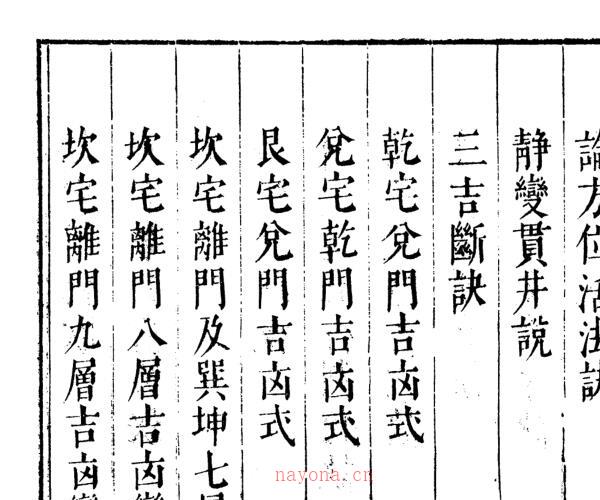 論方位活法訣
静變貫井說
三吉斷訣
乾宅兌門吉㐫式
兌宅乾門吉㐫式
艮宅兌門吉㐫式
坎宅離門及巽坤七層
坎宅離門八層吉㐫
坎宅離門九層吉㐫
nayona.cn